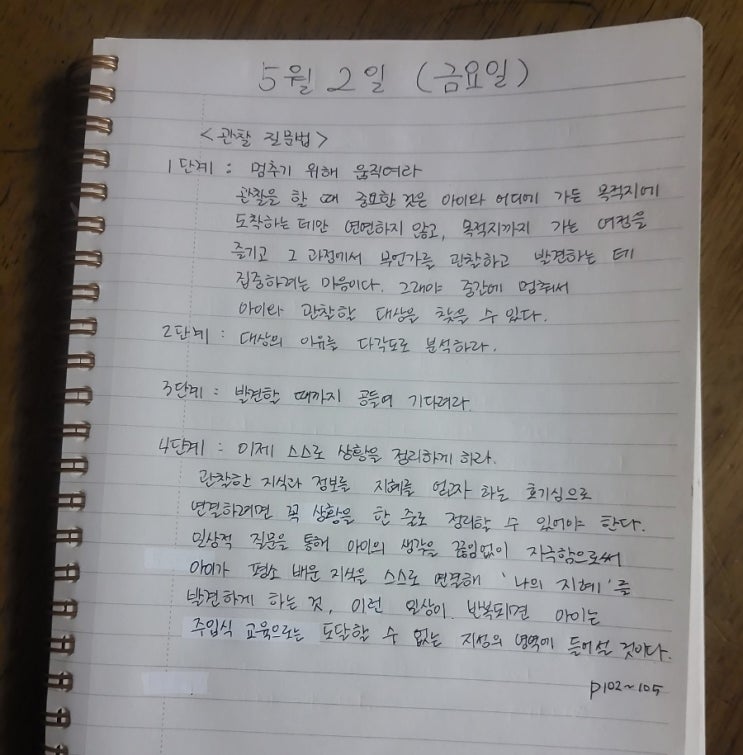 5월 2일 (금요일)
<관찰 질문법>
1단계 : 멈추기 위해 움직여라
관찰을 할 때 중요한 것은 아이와 어디에 가든 목적지에
도착하는 데만 연연하지 않고, 목적지까지 가는 여정을
즐기고 그 과정에서 무언가를 관찰하고 발견하는 데
집중하려는 마음이다. 그래야 중간에 멈춰서
아이와 관찰할 대상을 찾을 수 있다.
2단계 : 대상의 이유를 다각도로 분석하라.
3단계 : 발견할 때까지 공들여 기다려라.
4단계 : 이제 스스로 상황을 정리하게 하라.
관찰한 지식과 정보를 지혜를 얻고자 하는 호기심으로
연결하려면 꼭 상황을 한 줄로 정리할 수 있어야 한다.
일상적 질문을 통해 아이의 생각을 끊임없이 자극함으로써
아이가 평소 배운 지식을 스스로 연결해 '나의 지혜'를
발견하게 하는 것, 이런 일상이 반복되면 아이는
주입식 교육으로는 도달할 수 없는 지성의 영역에 들어설 것이다.
p102~105